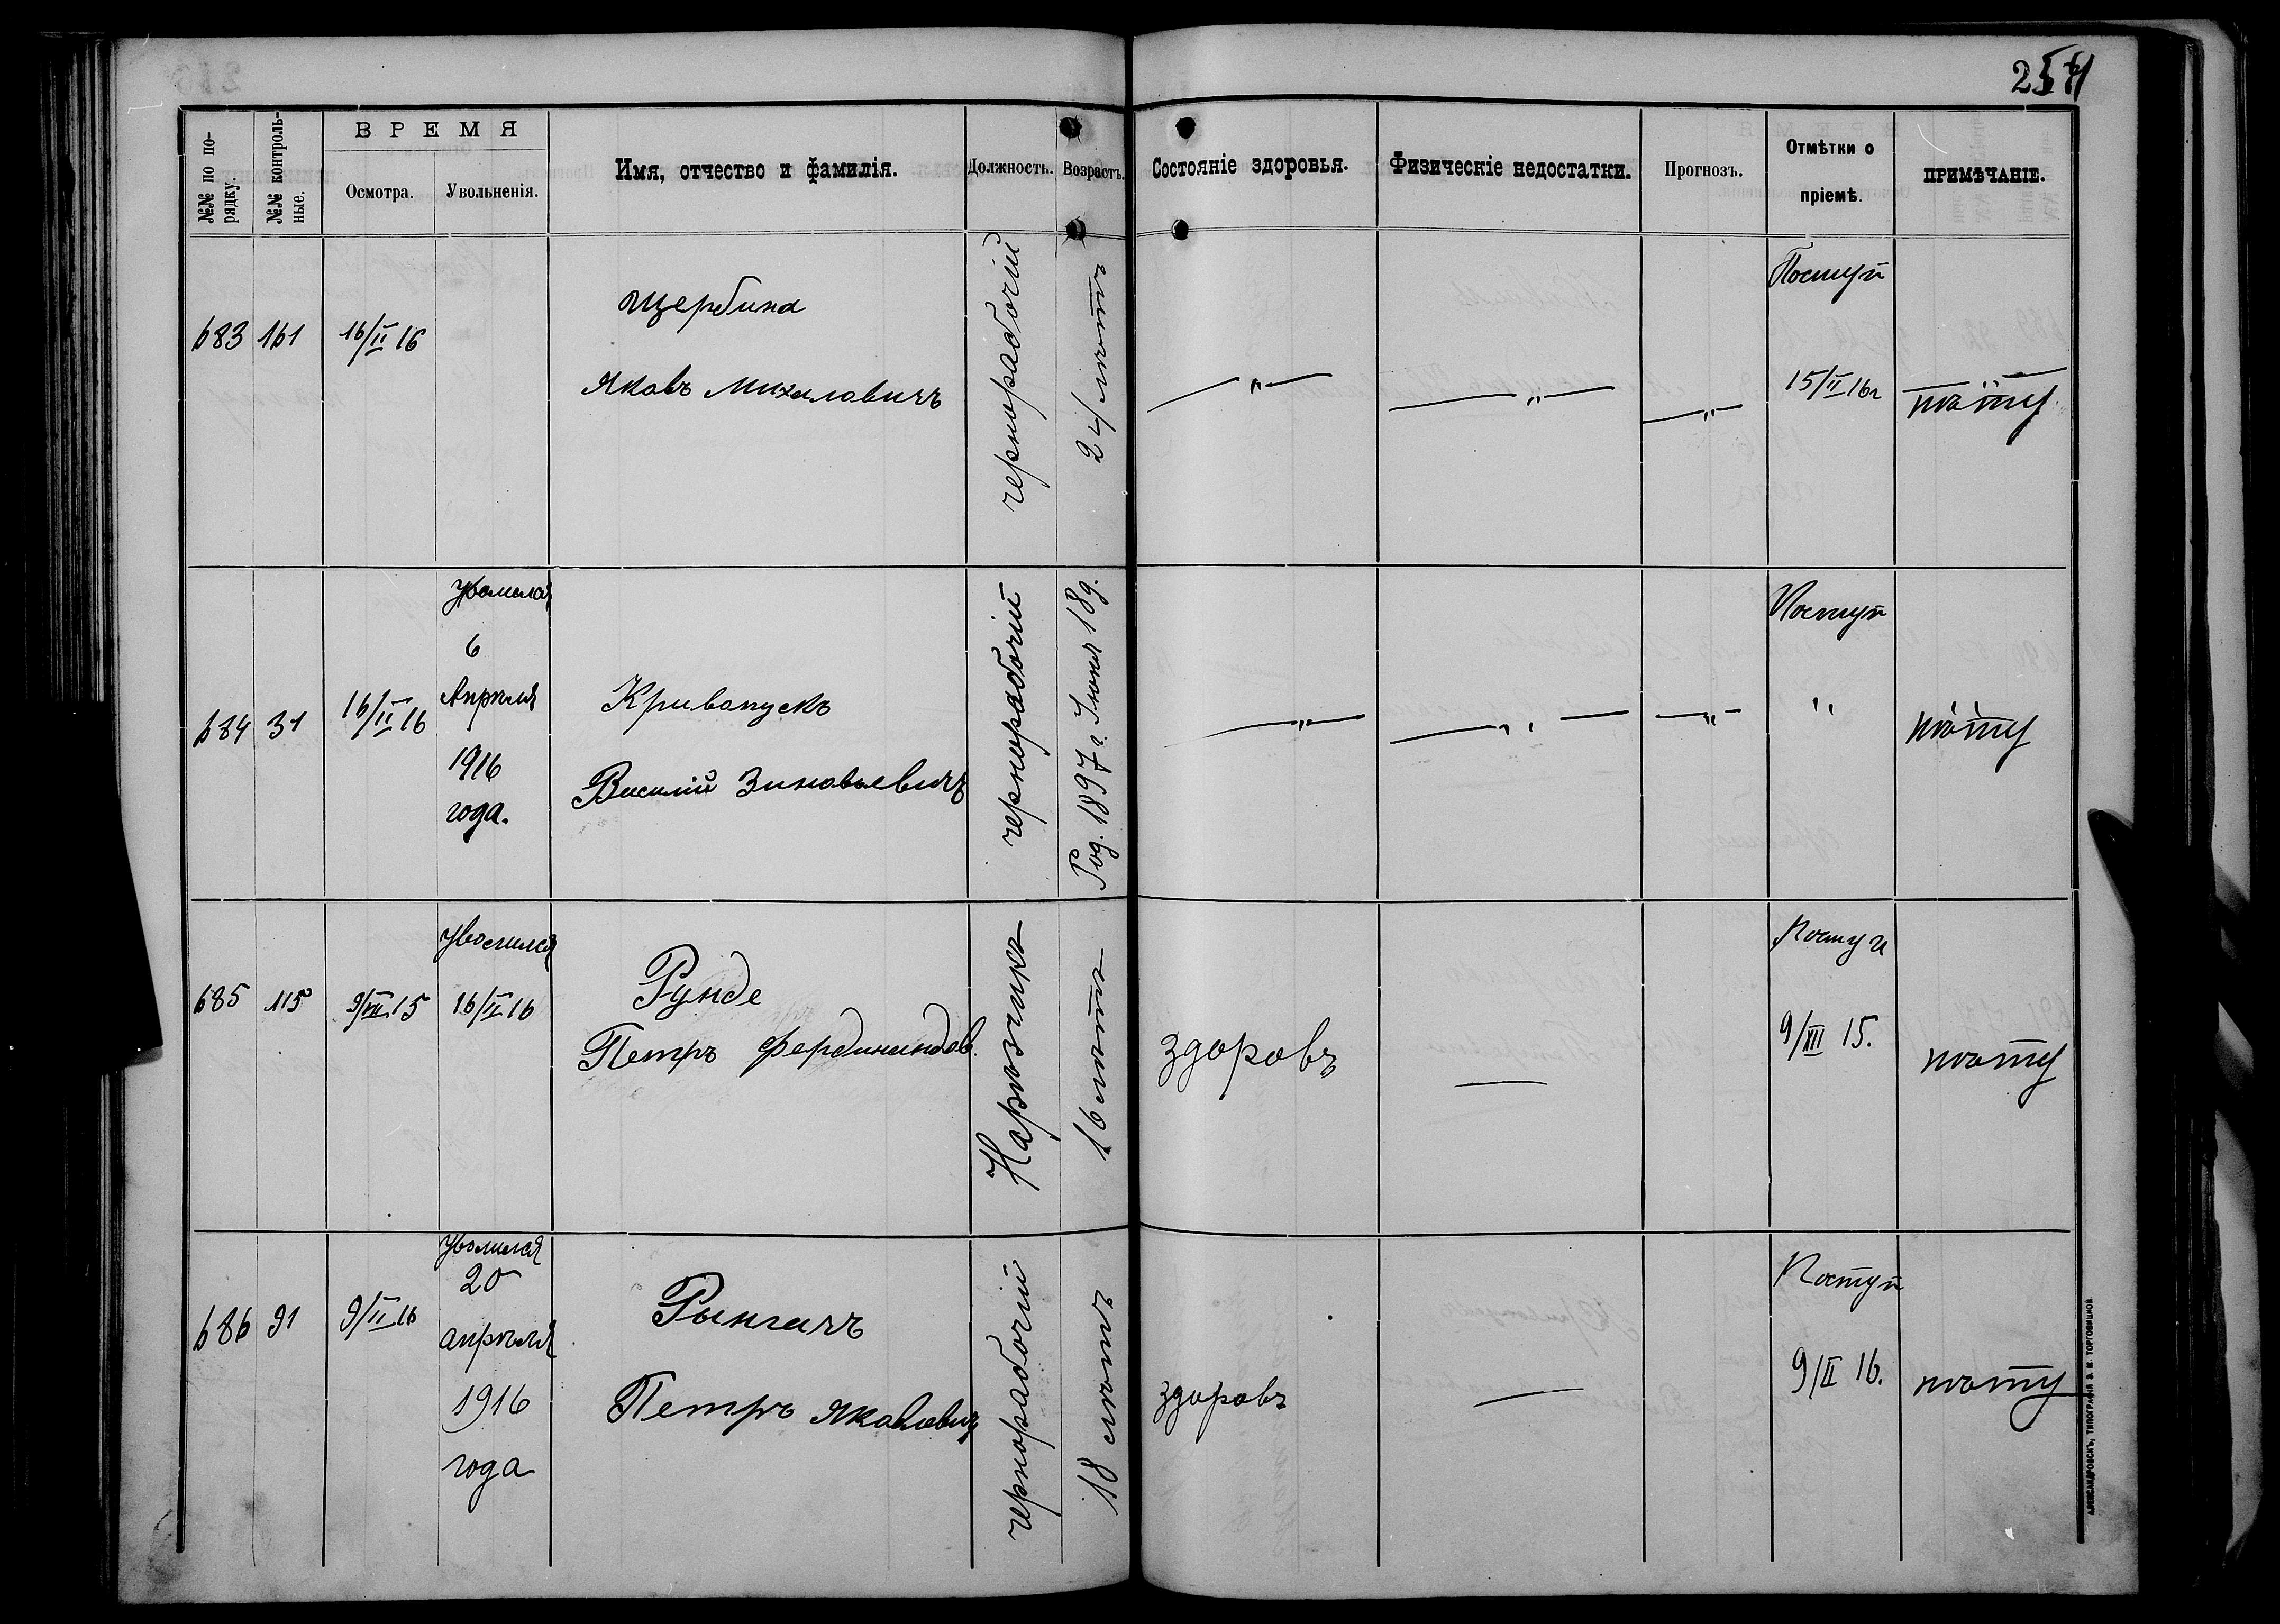 №№ по по-
рядку.
№№ контроль-
ные.
ВРЕМЯ
Осмотра.
Увольненія.
Имя, отчество и фамилія.
Должность.
Возрастъ.
Состояніе здоровья.
Физическіе недостатки.
Прогнозъ.
Отмѣтки о
пріемѣ.
ПРИМѢЧАНІЕ.
683 161 16/II 16
Щербина
Яковъ Михаловичъ
чернорабочій
24 лѣтъ
— " —
— " —
— " —
Поступ
15/II 16г
684 31 16/II 16
Уволился
6
Апрѣля
1916
года.
Кривопускъ
Василій Зиновьевичъ
чернорабочій
Род. 1897 г. Іюня 18 д.
— " —
— " —
— " —
Поступ
"
685 115 9/XII 15
Уволился
16/II 16
Рунде
Петръ Фердинандов.
Нарѣзчикъ
16 лѣтъ
здоровъ
—
Поступ
9/XII 15.
686 91 9/II 16
Уволился
20
апрѣля
1916
года
Рынгачъ
Петръ Яковлевичъ
чернорабочій
18 лѣтъ
здоровъ
—
Поступ
9/II 16.
АЛЕКСАНДРОВСКЪ, ТИПОГРАФІЯ Э. И. ТОРГОВИЦКОЙ.